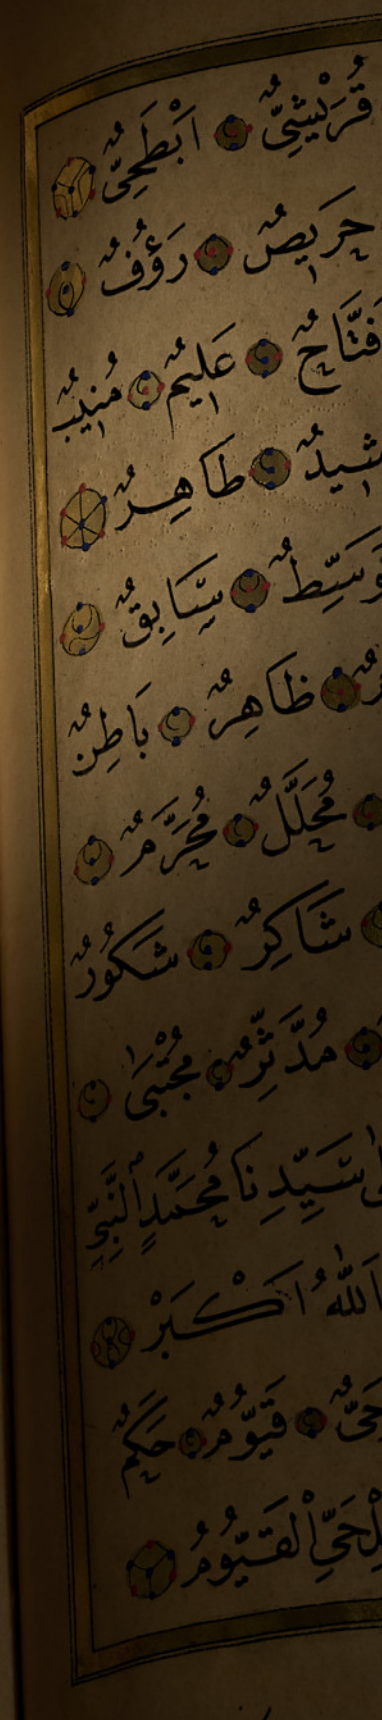 قُرَيْشِيٌّ اَبْطَحِيٌّ
حَرِيصٌ رَؤُفٌ
فَتَّاحٌ عَلِيمٌ مُنِيبٌ
طَاهِرٌ
سَابِقٌ
ظَاهِرٌ بَاطِنٌ
مُحَلَّلٌ مُحَرَّمٌ
شَاكِرٌ شَكُورٌ
مُدَّثِّرٌ مُجْتَبَى
سَيِّدِنَا مُحَمَّدٍ النَّبِيِّ
اَللّٰهُ اَكْبَرْ
حَيٌّ قَيُّومٌ حَكَمٌ
الْقَيُّومُ